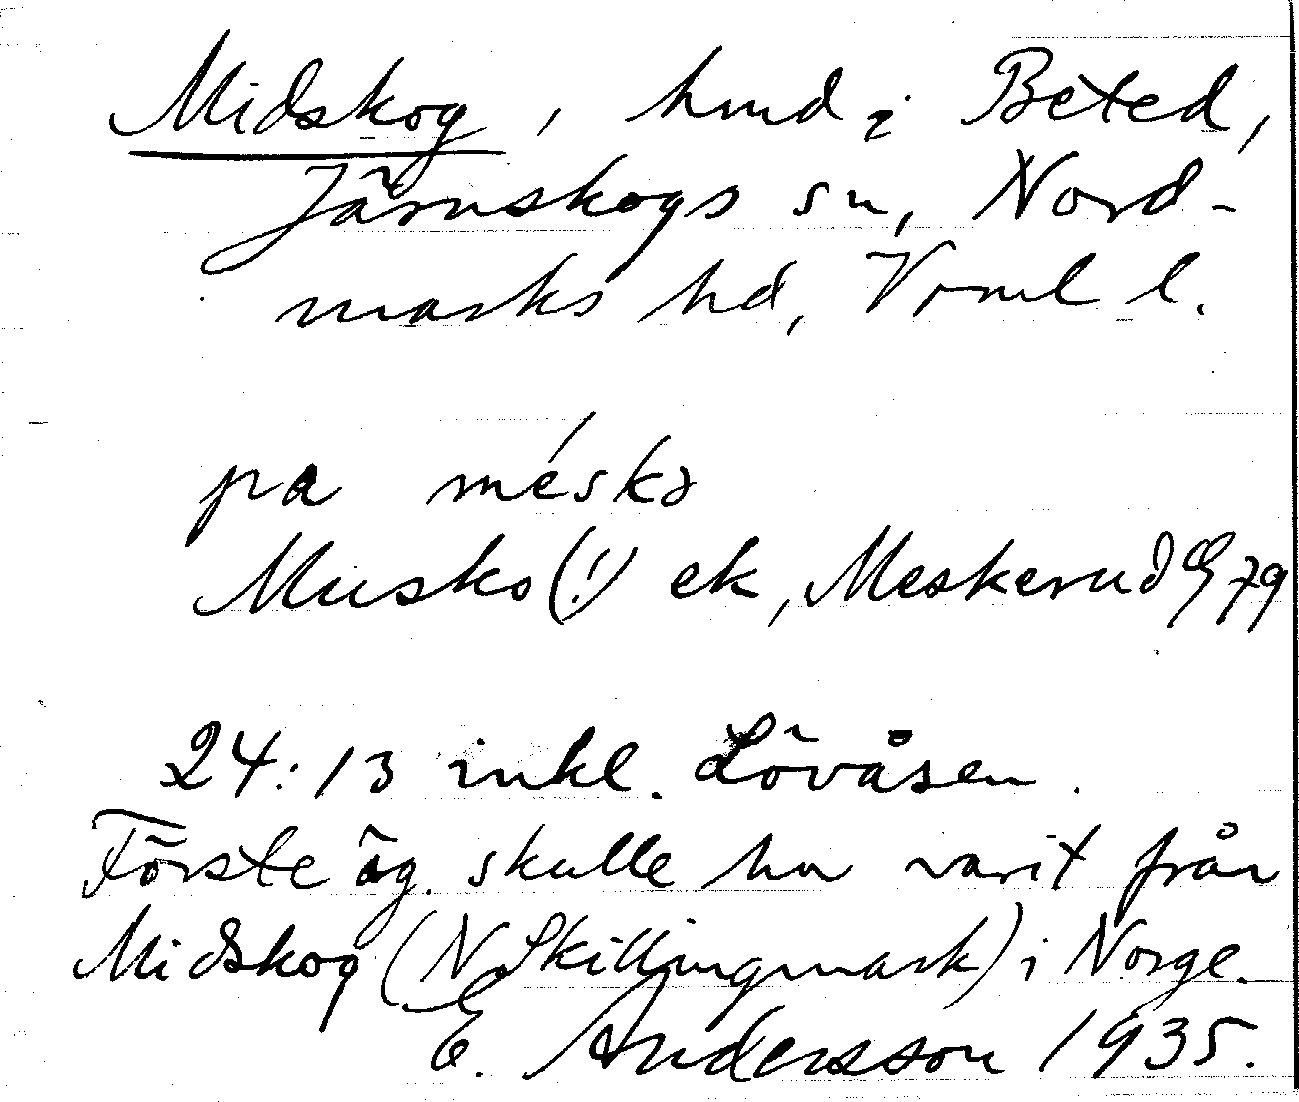 Midskog, hmd i Beted,
Järnskogs sn, Nord-
marks hd, Vrml l.
pa méskə
Musko(!) ek, Meskerud G 79
24:13 inkl. Lövåsen.
Förste äg. skulle ha varit från
Midskog (N Skillingmark) i Norge.
E. Andersson 1935.